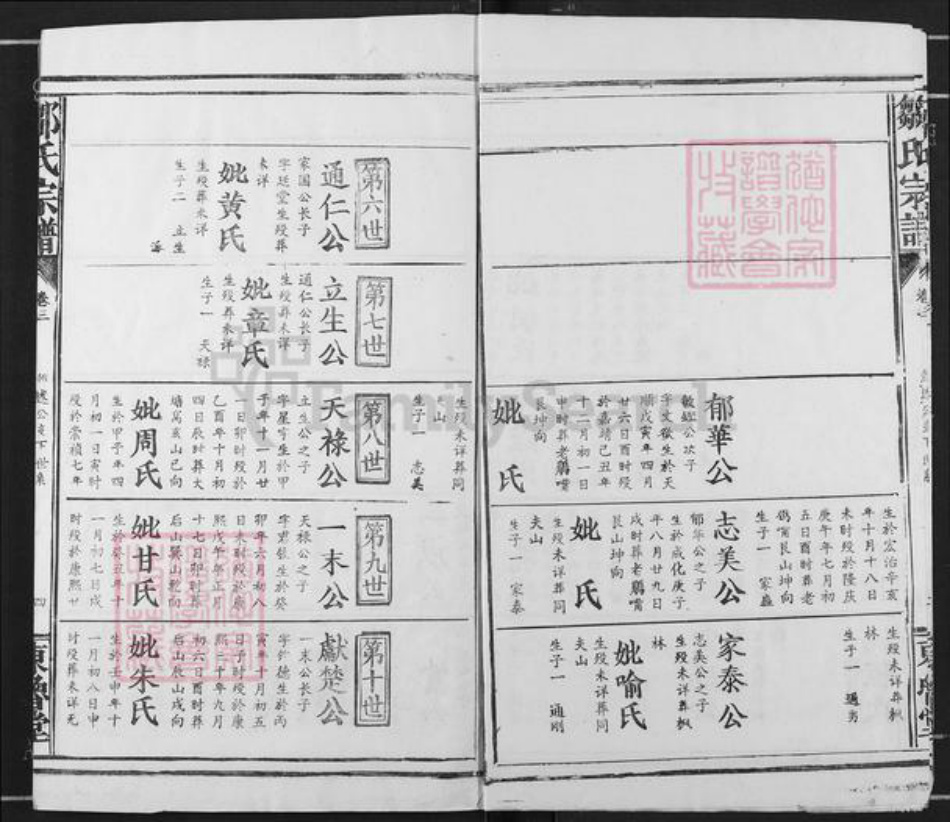 鄒氏宗譜
卷三
郁華公
敏鉱公次子
字文嶽生於天
順戊寅年四月
廿六日酉時歿
於嘉靖己丑年
十二月初一日
申時葬老鵰嘴
艮坤向
妣 氏
生歿未詳葬同
山
生子一 志美
生於宏治辛亥
年十月十八日
未時歿於隆茂
庚午年七月初
五日酉時葬老
鴉嘴艮山坤向
生子一 家盛
志美公
郁華公之子
生於成化庚子
年八月廿九日
戌時葬老鵰嘴
艮山坤向
妣 氏
生歿未詳葬同
夫山
生子一 家泰
生歿未詳葬楓
林
生子一 通勇
家泰公
志美公之子
生歿未詳葬楓
林
妣喻氏
生歿未詳葬同
夫山
生子一 通剛
第六世
通仁公
家国公長子
字廷堂生歿葬
未詳
妣黃氏
生歿葬未詳
生子二 立生
第七世
立生公
通仁公長子
生歿葬未詳
妣章氏
生歿葬未詳
生子一 天祿
第八世
天祿公
立生公之子
字星亨生於甲
子年十一月廿
一日卯時歿於
乙酉年十月初
四日辰時葬大
塘窩亥山巳向
妣周氏
生於甲子年四
月初一日寅時
歿於崇禎七年
第九世
一末公
天祿公之子
字君弼生於癸
卯年六月初八
日未時歿於康
熙戊午年正月
十七日卯時葬
后山巽山乾向
妣甘氏
生於癸丑年十
一月初七日戌
時歿於康熙廿
第十世
獻楚公
一末公長子
字行德生於丙
寅年十月初五
日子時歿於康
熙二十年九月
初六日酉時葬
后山辰山戌向
妣朱氏
生於壬申年十
一月初八日申
時歿葬未詳无
鄒氏宗譜
卷三
四
東魯堂
FamilySearch